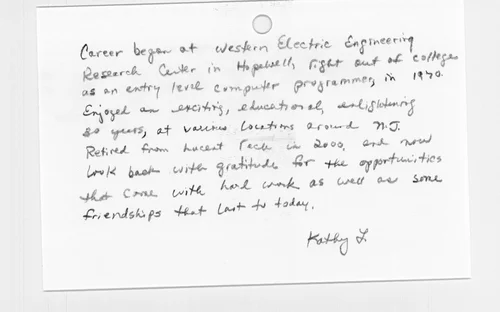 Career began at Western Electric Engineering
Research Center in Hopewell, right out of college
as an entry level computer programmer, in 1970.
Enjoyed an exciting, educational, enlightening
30 years, at various locations around N.J.
Retired from Lucent Tech in 2000, and now
look back with gratitude for the opportunities
that come with hard work as well as some
friendships that last to today.
Kathy L